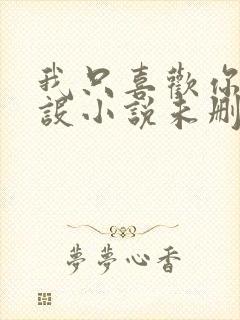 我只喜歡你
設小說未刪
夢夢心香